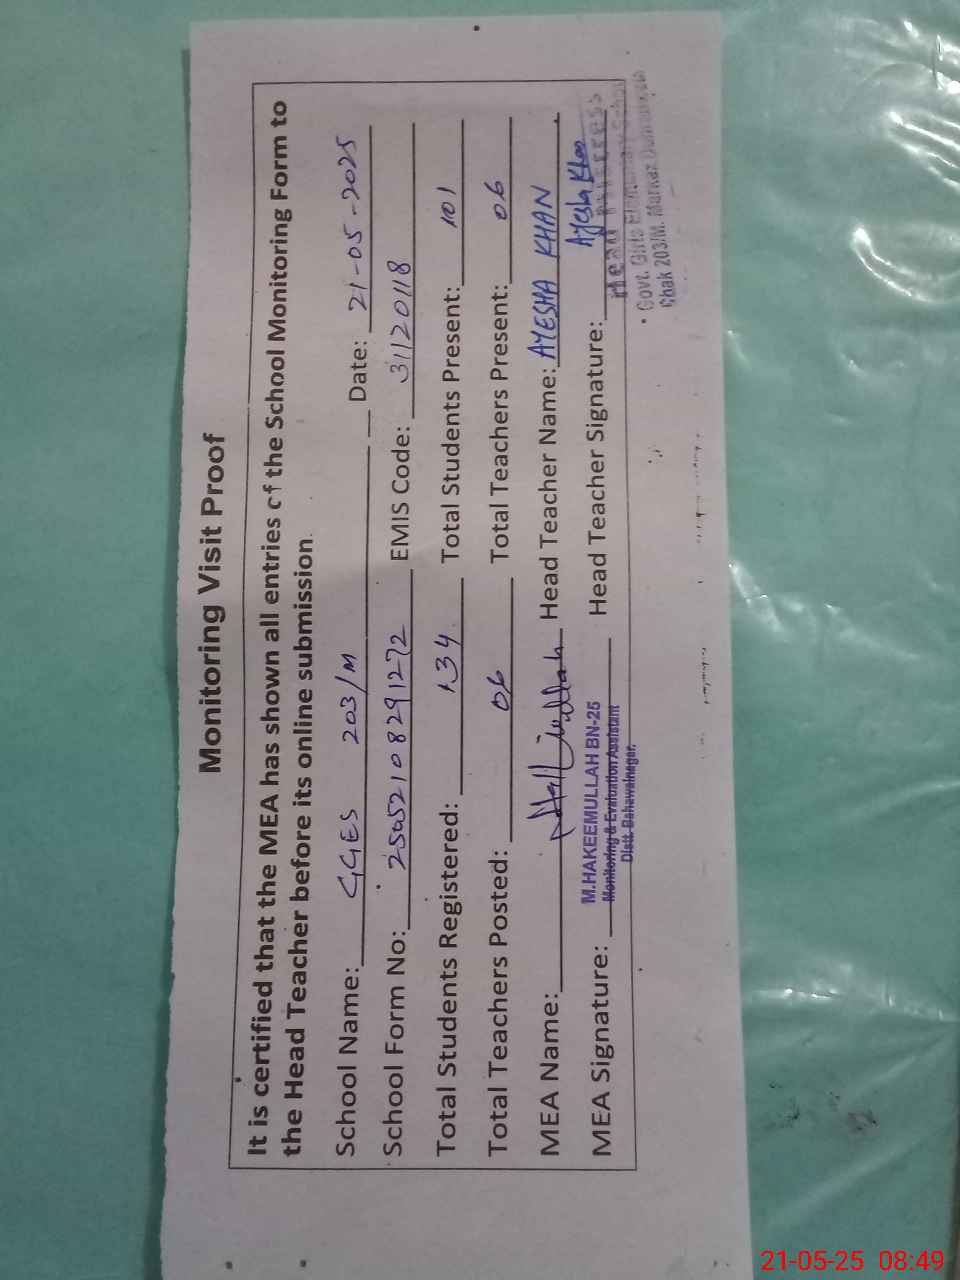 Monitoring Visit Proof
It is certified that the MEA has shown all entries of the School Monitoring Form to
the Head Teacher before its online submission.
School Name: GGES 203/M Date: 21-05-2025
School Form No: 25052108291272 EMIS Code: 31120118
Total Students Registered: 134 Total Students Present: 101
Total Teachers Posted: 06 Total Teachers Present: 06
MEA Name: Head Teacher Name: AYESHA KHAN
MEA Signature: Head Teacher Signature: Ayesha Khan
M.HAKEEMULLAH BN-25
Monitoring & Evaluation Assistant
Distt. Bahawalnagar.
Head Mistress
Govt. Girls Elementary School
Chak 203/M. Markaz
21-05-25 08:49